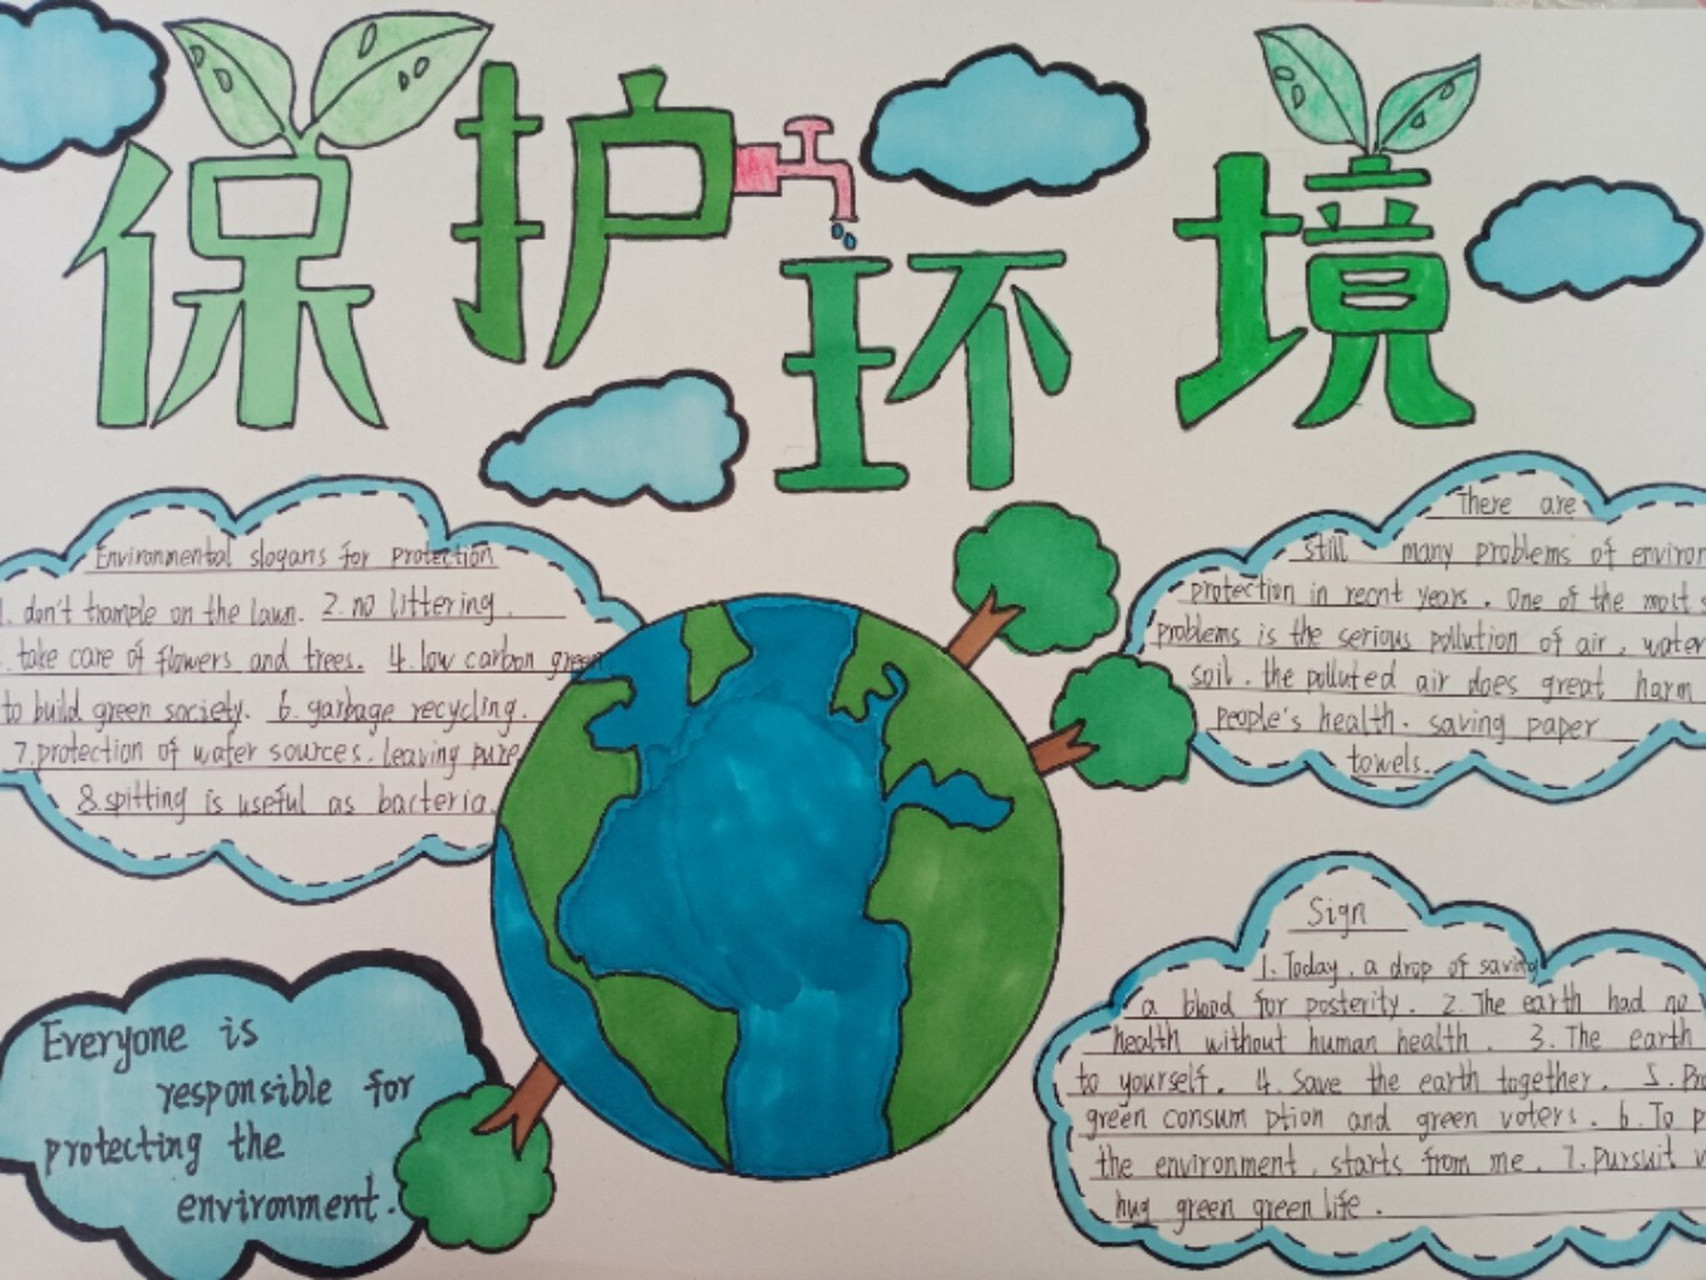 保护环境
Environmental slogans for protection
1. don't trample on the lawn. 2. no littering.
. take care of flowers and trees. 4. low carbon green
to build green society. 6. garbage recycling.
7. protection of water sources. leaving pure
8. spitting is useful as bacteria.
There are
still many problems of environ
protection in recnt years. One of the most s
problems is the serious pollution of air, water
soil. the polluted air does great harm
people's health. saving paper
towels.
Everyone is
responsible for
protecting the
environment.
Sign
1. Today, a drop of saving
a blood for posterity. 2. The earth had no
health without human health. 3. The earth
to yourself. 4. Save the earth together. 5. Pro
green consum ption and green voters. 6. To p
the environment, starts from me. 7. pursuit
hug green green life.